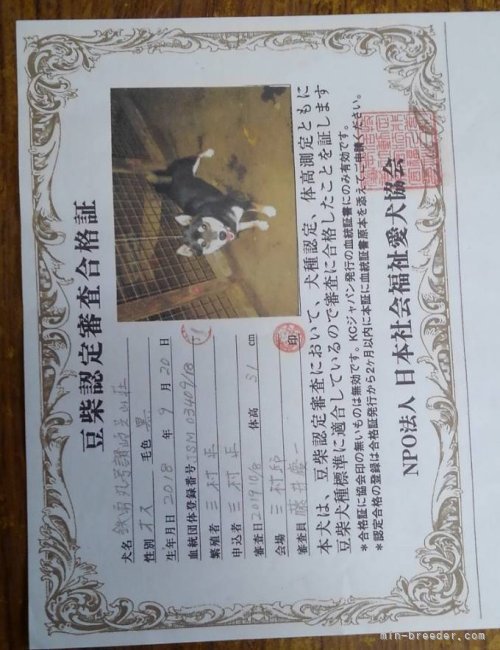 豆柴認定審査合格証
犬名
性別 オス 毛色 黒
生年月日 2018 年 9 月 20 日
血統団体登録番号
繁殖者 三村 正
申込者 三村 正
審査日 2019/10/8 体高 31 cm
会場 三村邸
審査員 藤井 印
本犬は、豆柴認定審査において、犬種認定、体高測定ともに
豆柴犬種標準に適合しているので審査に合格したことを証します
*合格証に協会印の無いものは無効です。KCジャパン発行の血統証書にのみ有効です。
*認定合格の登録は合格証発行から2ケ月以内に本証に血統証書原本を添えてご申請ください。
NPO法人 日本社会福祉愛犬協会
min-breeder.com